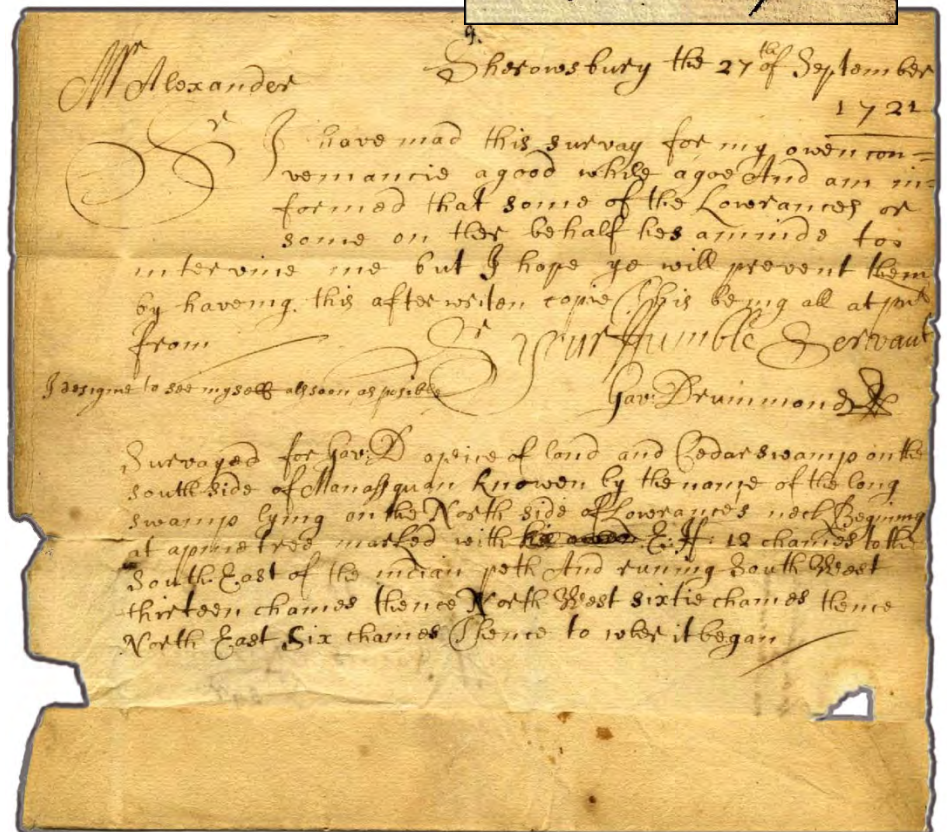 9.
Mr Alexander
Sherowsbury the 27th of September
1721
Sr I have mad this survay for my owen con=
veniancie agood while agoe And am in=
formed that some of the Lowrances or
some on ther behalf hes aminde too
intervine me but I hope ye will prevent them
by haveing this afterwriten copie This being all at prt
from Sr Your Humble Servant
I designe to see myself alssoon as posible
Gav: Drummond
Survayed for Gav: D apeice of land and Cedar swamp on the
south side of Manasquan Knowen by the name of the long
swamp lying on the North side of Lowrances neck Begining
at apine tree marked with E: H: 18 chaines to the
South East of the indian peth And runing South West
thirteen chaines thence North West sixtie chaines thence
North East Six chaines Thence to wher it began